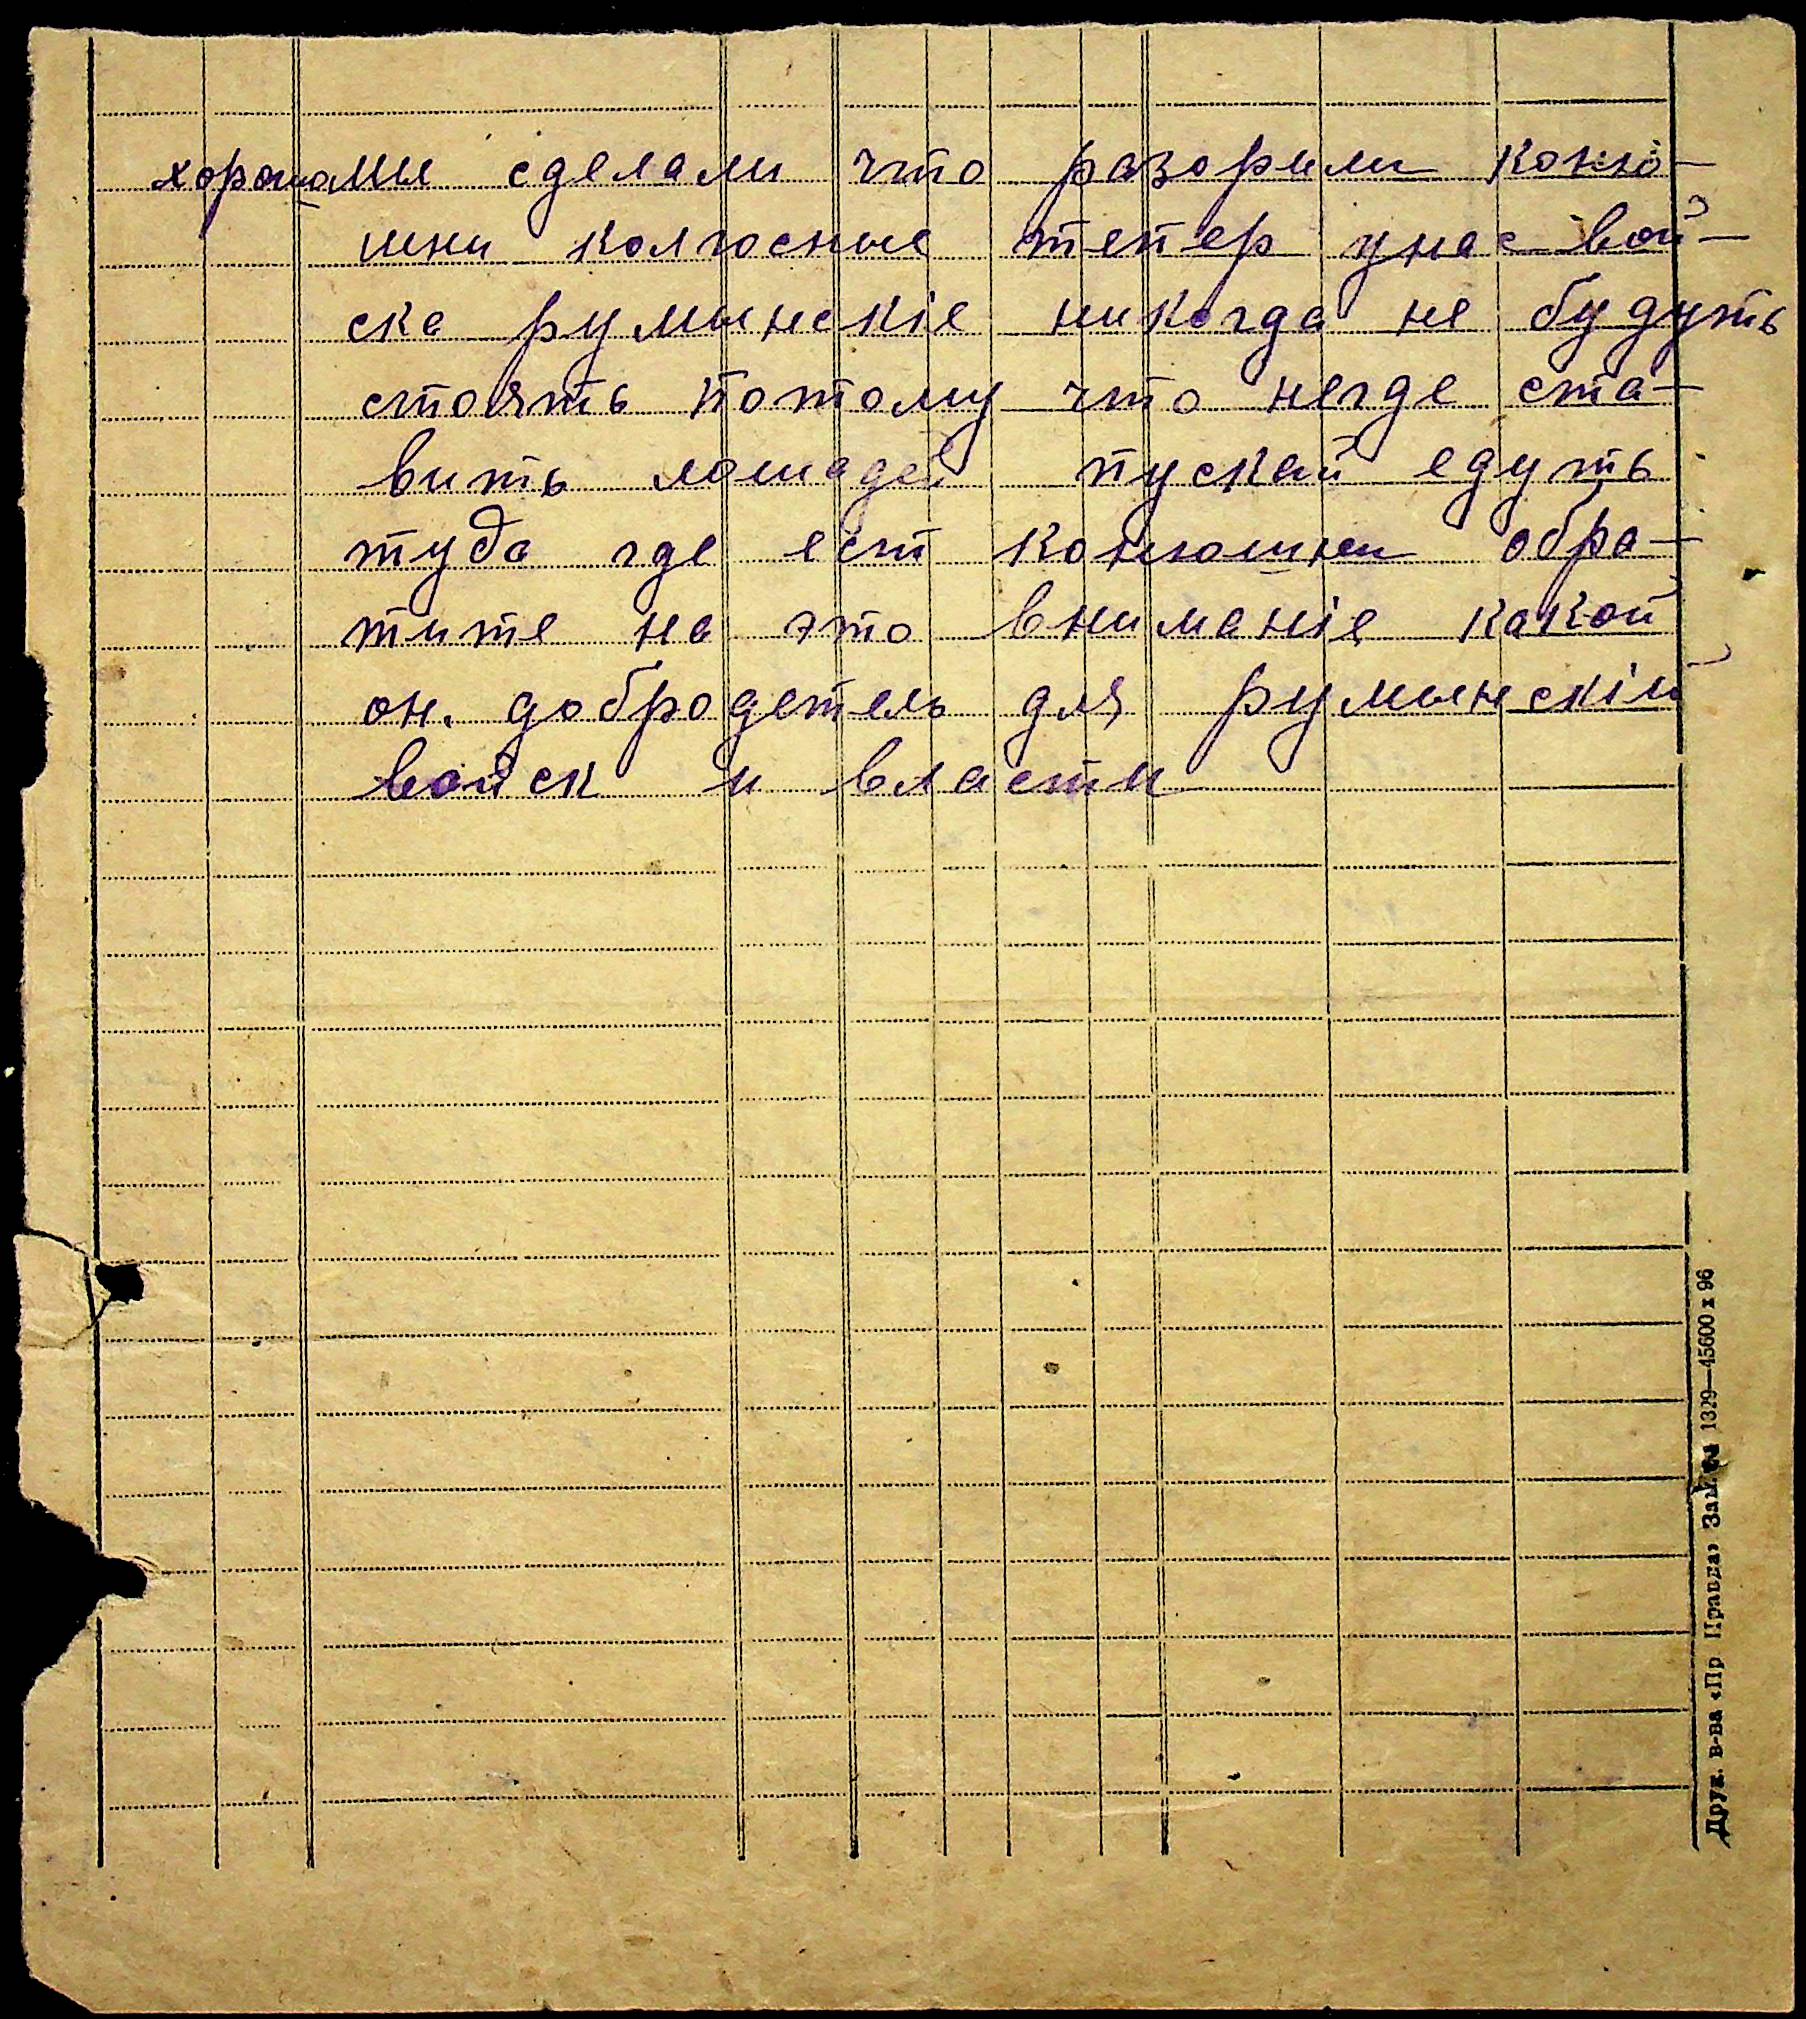 хорошо мы сделали что разорили коню-
шни колхосные тепер у нас вой-
ска румынскіе никогда не будуть
стоять потому что негде ста-
вить лошадей пускай едуть
туда где ест конюшни обра-
тите на это вниманіе какой
он. добродетель для румынскій
войск и власти
Друк. в-ва «Пр Правда» 1329—45600 x 96